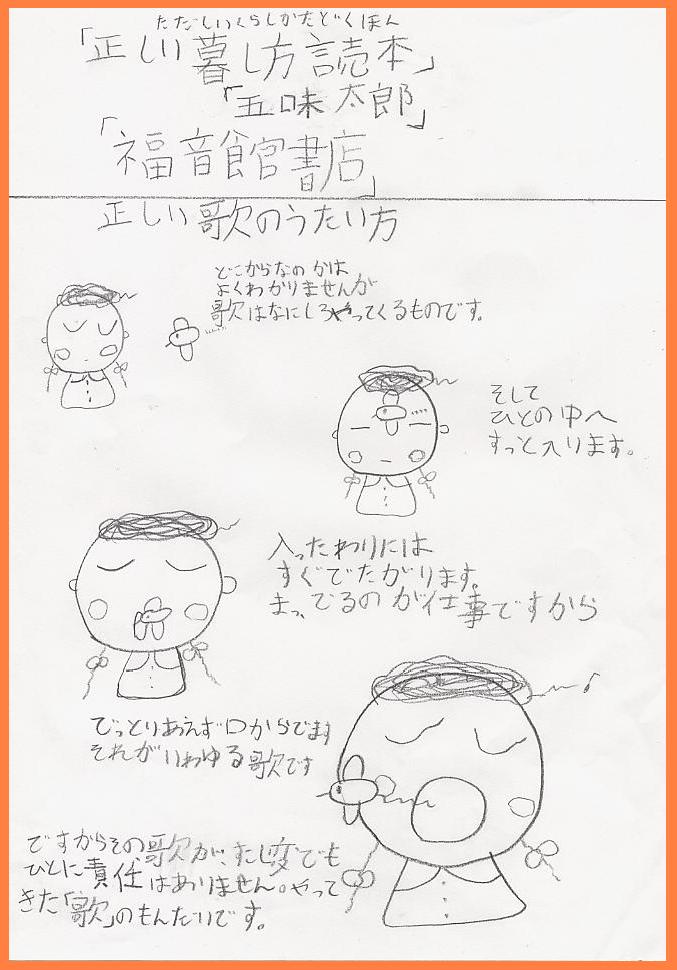 ただしいくらしかたどくほん
「正しい暮し方読本」
「五味太郎」
「福音館書店」
正しい歌のうたい方
どこからなのかは
よくわかりませんが
歌はなにしろやってくるものです。
そして
ひとの中へ
すっと入ります。
入ったわりには
すぐでたがります。
まっ、でるのが仕事ですから
でっとりあえず口からでます
それがいわゆる歌です
ですからその歌が、すこし変でも
ひとに責任はありません。やって
きた「歌」のもんだいです。